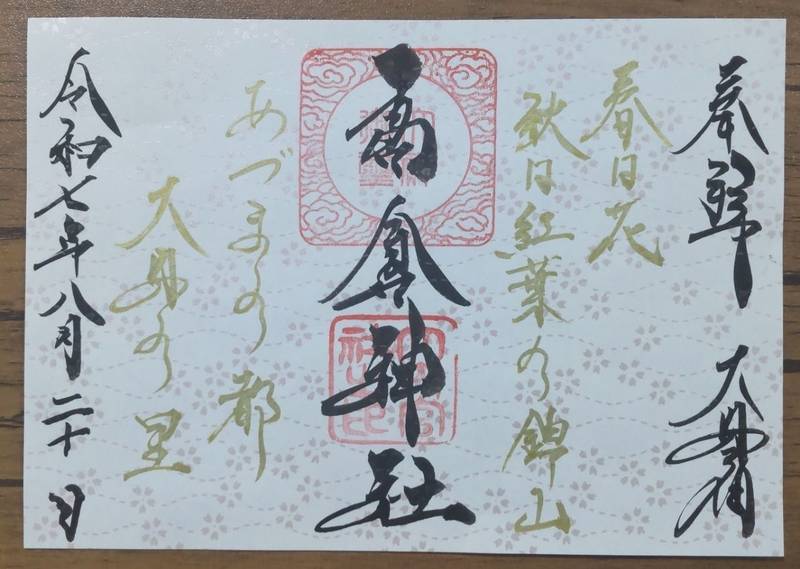 奉拝 大
春日花
秋日紅葉の錦山
高倉神社
あづまの都
大 の里
令和七年八月二十日